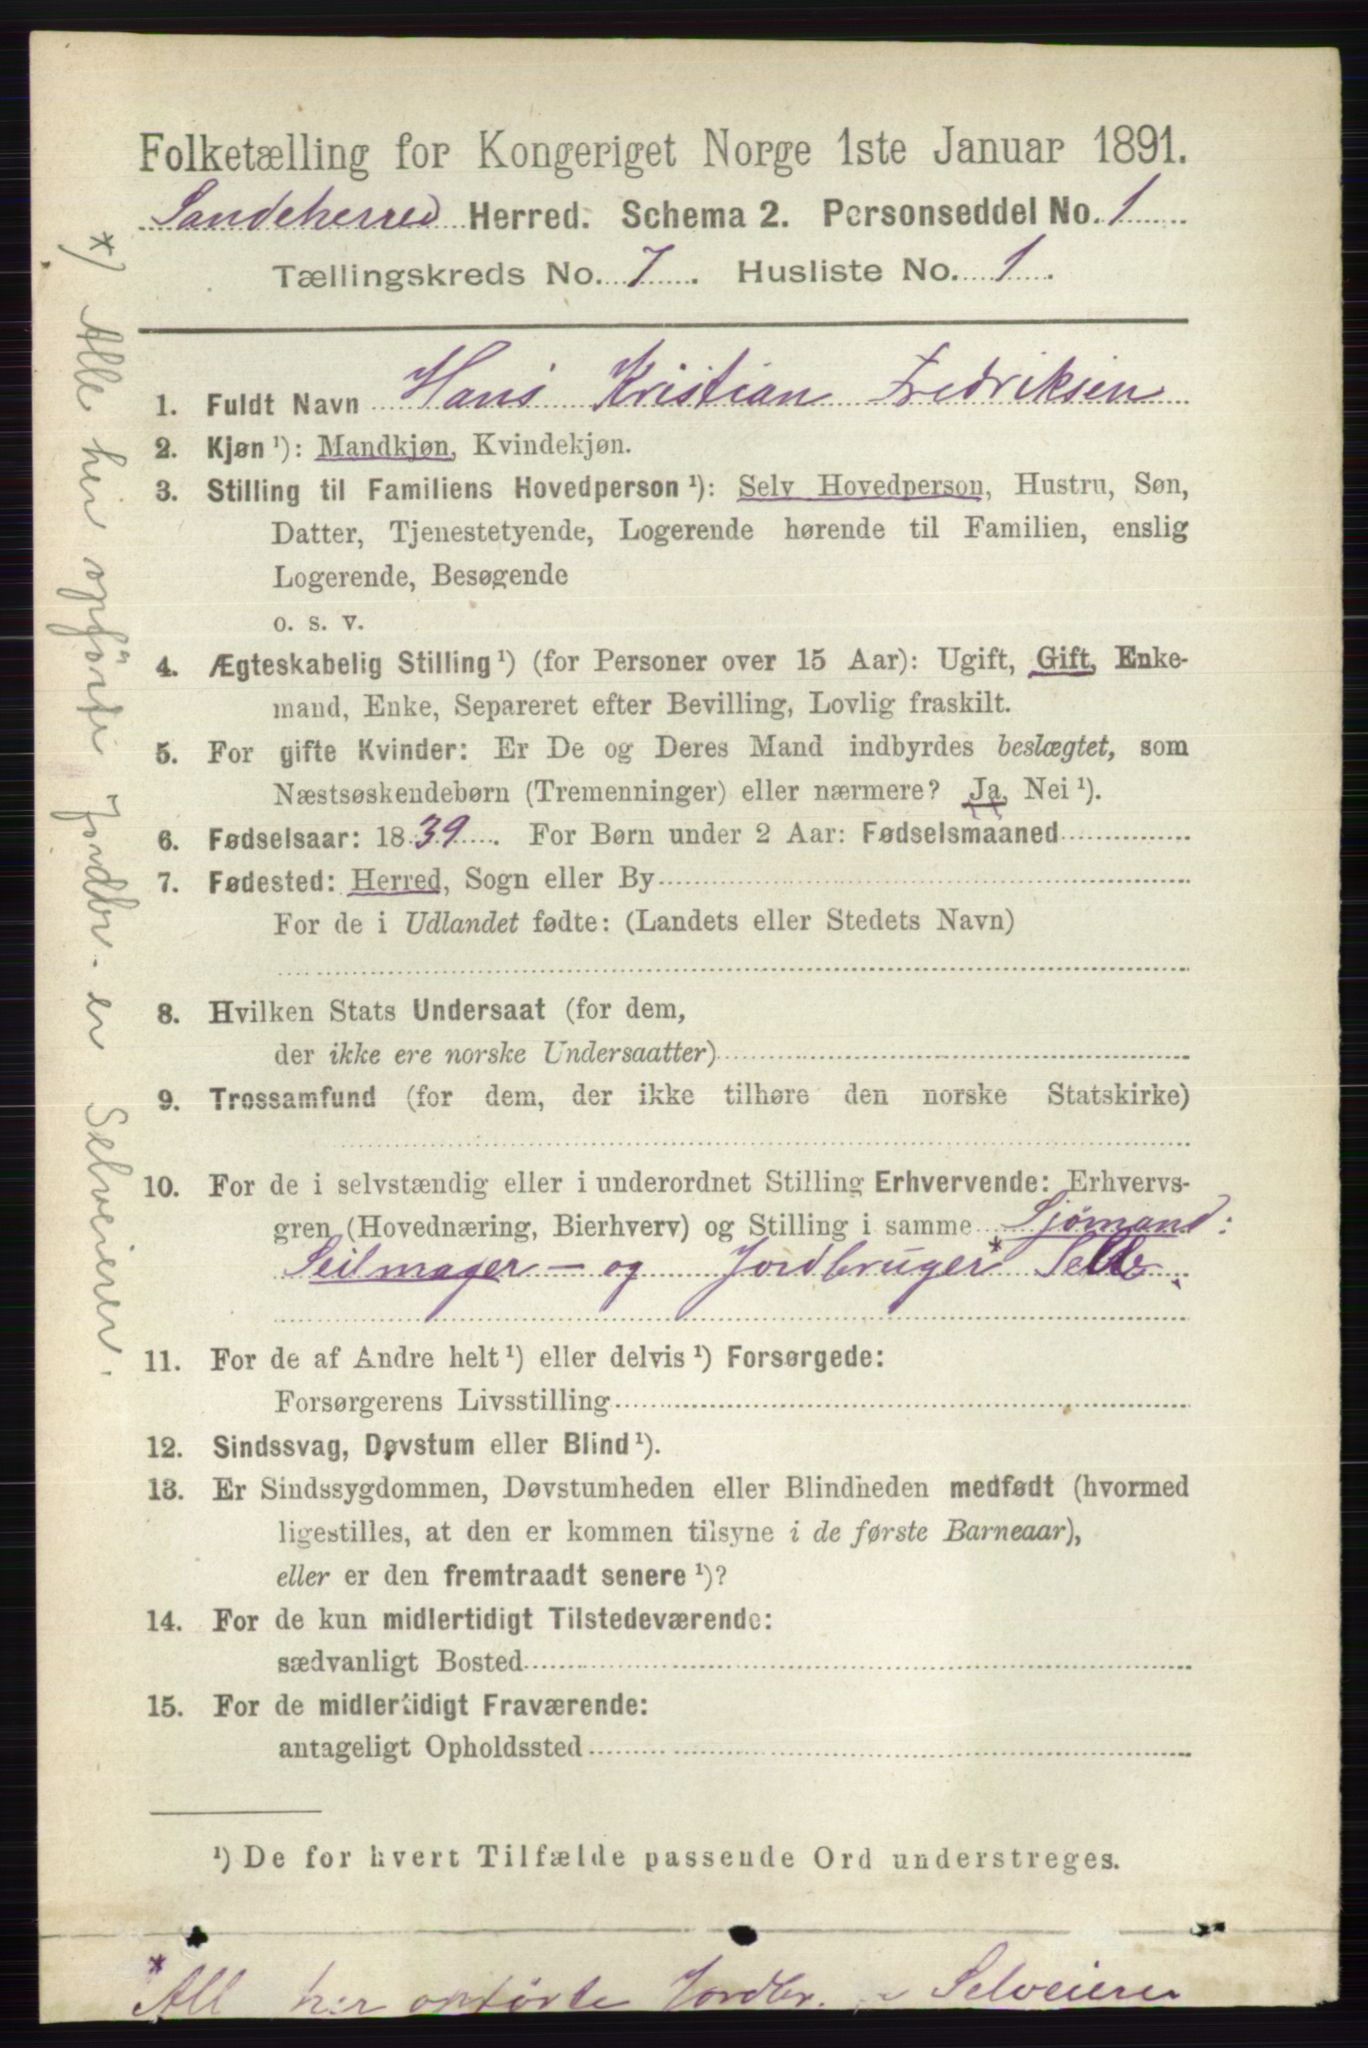 Folketælling for Kongeriget Norge 1ste Januar 1891.
Sandeherred Herred. Schema 2. Personseddel No. 1
Tællingskreds No. 7. Husliste No. 1.
1. Fuldt Navn Hans Kristian Fredriksen
2. Kjøn ¹): Mandkjøn, Kvindekjøn.
3. Stilling til Familiens Hovedperson ¹): Selv Hovedperson, Hustru, Søn,
Datter, Tjenestetyende, Logerende hørende til Familien, enslig
Logerende, Besøgende
o. s. v.
4. Ægteskabelig Stilling ¹) (for Personer over 15 Aar): Ugift, Gift, Enke-
mand, Enke, Separeret efter Bevilling, Lovlig fraskilt.
5. For gifte Kvinder: Er De og Deres Mand indbyrdes beslægtet, som
Næstsøskendebørn (Tremenninger) eller nærmere? Ja, Nei ¹).
6. Fødselsaar: 1839. For Børn under 2 Aar: Fødselsmaaned
7. Fødested: Herred, Sogn eller By
For de i Udlandet fødte: (Landets eller Stedets Navn)
8. Hvilken Stats Undersaat (for dem,
der ikke ere norske Undersaatter)
9. Trossamfund (for dem, der ikke tilhøre den norske Statskirke)
10. For de i selvstændig eller i underordnet Stilling Erhvervende: Erhvervs-
gren (Hovednæring, Bierhverv) og Stilling i samme Sjømand:
Seilmager – og Jordbruger*
11. For de af Andre helt ¹) eller delvis ¹) Forsørgede:
Forsørgerens Livsstilling
12. Sindssvag, Døvstum eller Blind ¹).
13. Er Sindssygdommen, Døvstumheden eller Blindheden medfødt (hvormed
ligestilles, at den er kommen tilsyne i de første Barneaar),
eller er den fremtraadt senere ¹)?
14. For de kun midlertidigt Tilstedeværende:
sædvanligt Bosted
15. For de midlertidigt Fraværende:
antageligt Opholdssted
¹) De for hvert Tilfælde passende Ord understreges.
* All her opførte Jordbr. Selveiere
*) Alle her opførte Jordbr. er Selveierer.